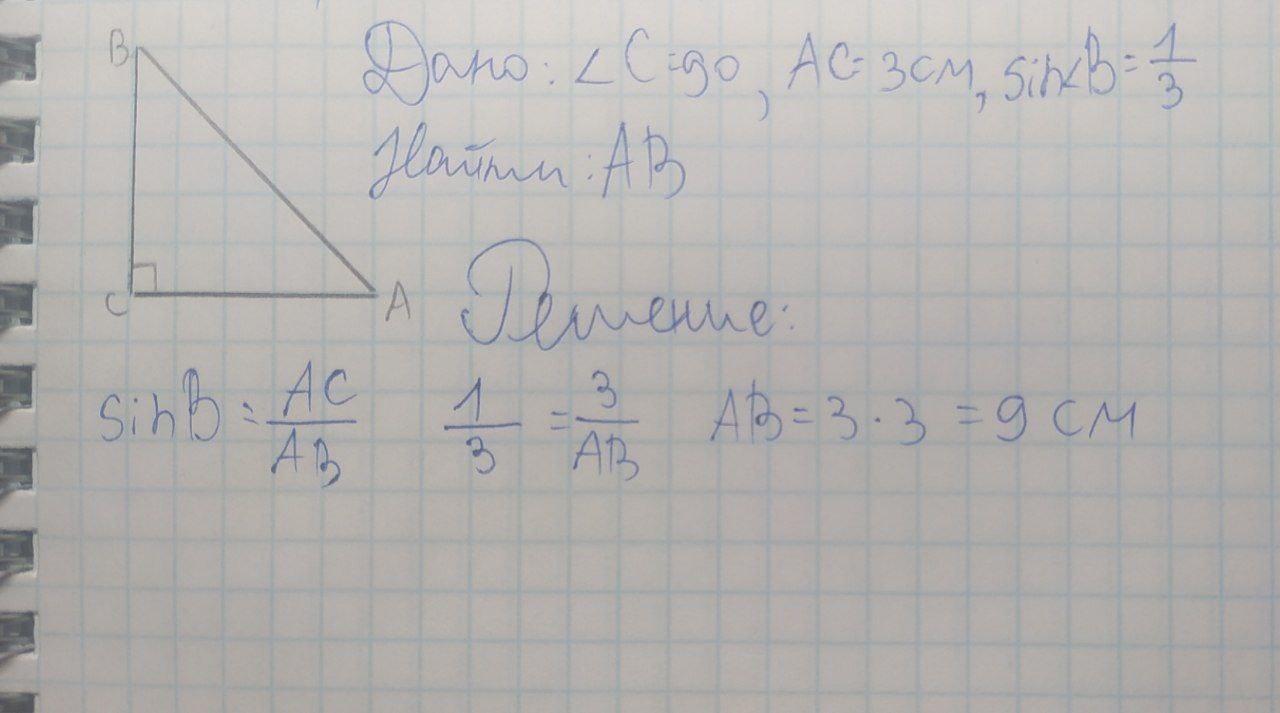 B
Дано: ∠C=90, AC=3см, sin∠B=1/3
Найти: AB
C
A
Решение:
sinB = AC/AB 1/3 = 3/AB AB = 3·3 = 9 см